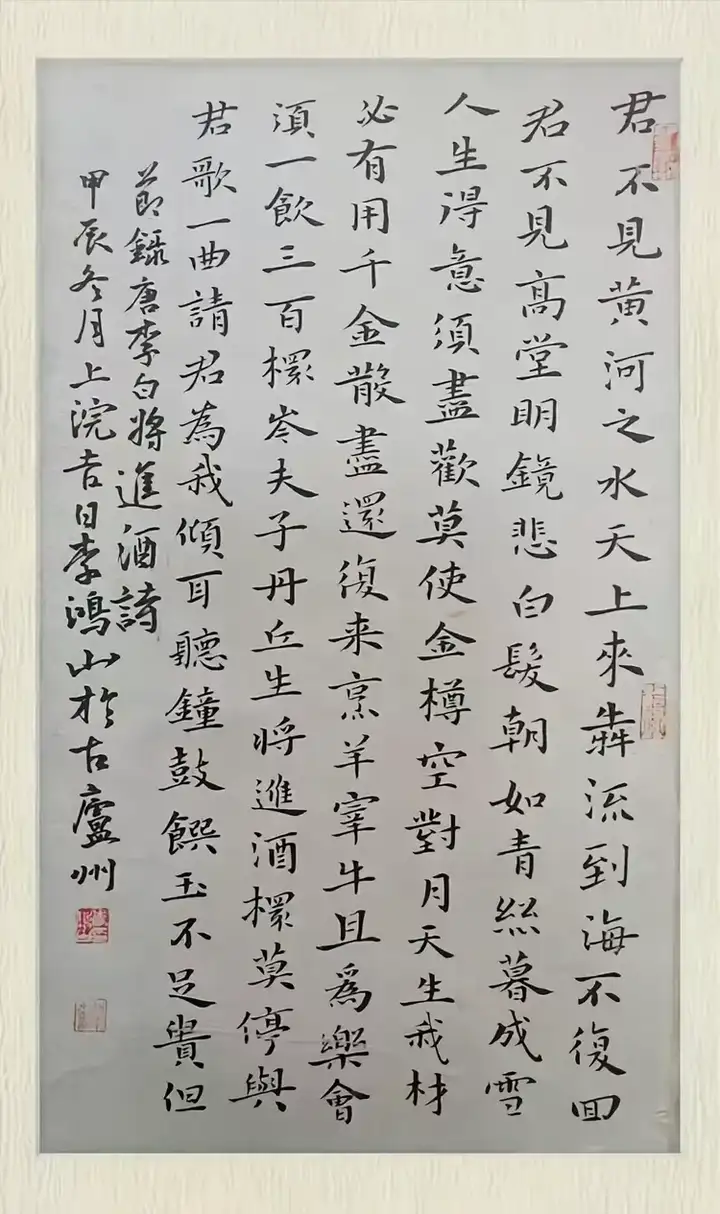 君不見黄河之水天上來犇流到海不復回
君不見高堂明鏡悲白髮朝如青絲暮成雪
人生得意須盡歡莫使金樽空對月天生我材
必有用千金散盡還復来烹羊宰牛且爲樂會
須一飲三百桮岑夫子丹丘生将進酒桮莫停與
君歌一曲請君為我傾耳聽鐘鼓饌玉不足貴但
節録唐李白将進酒詩
甲辰冬月上浣吉日李鴻山於古廬州